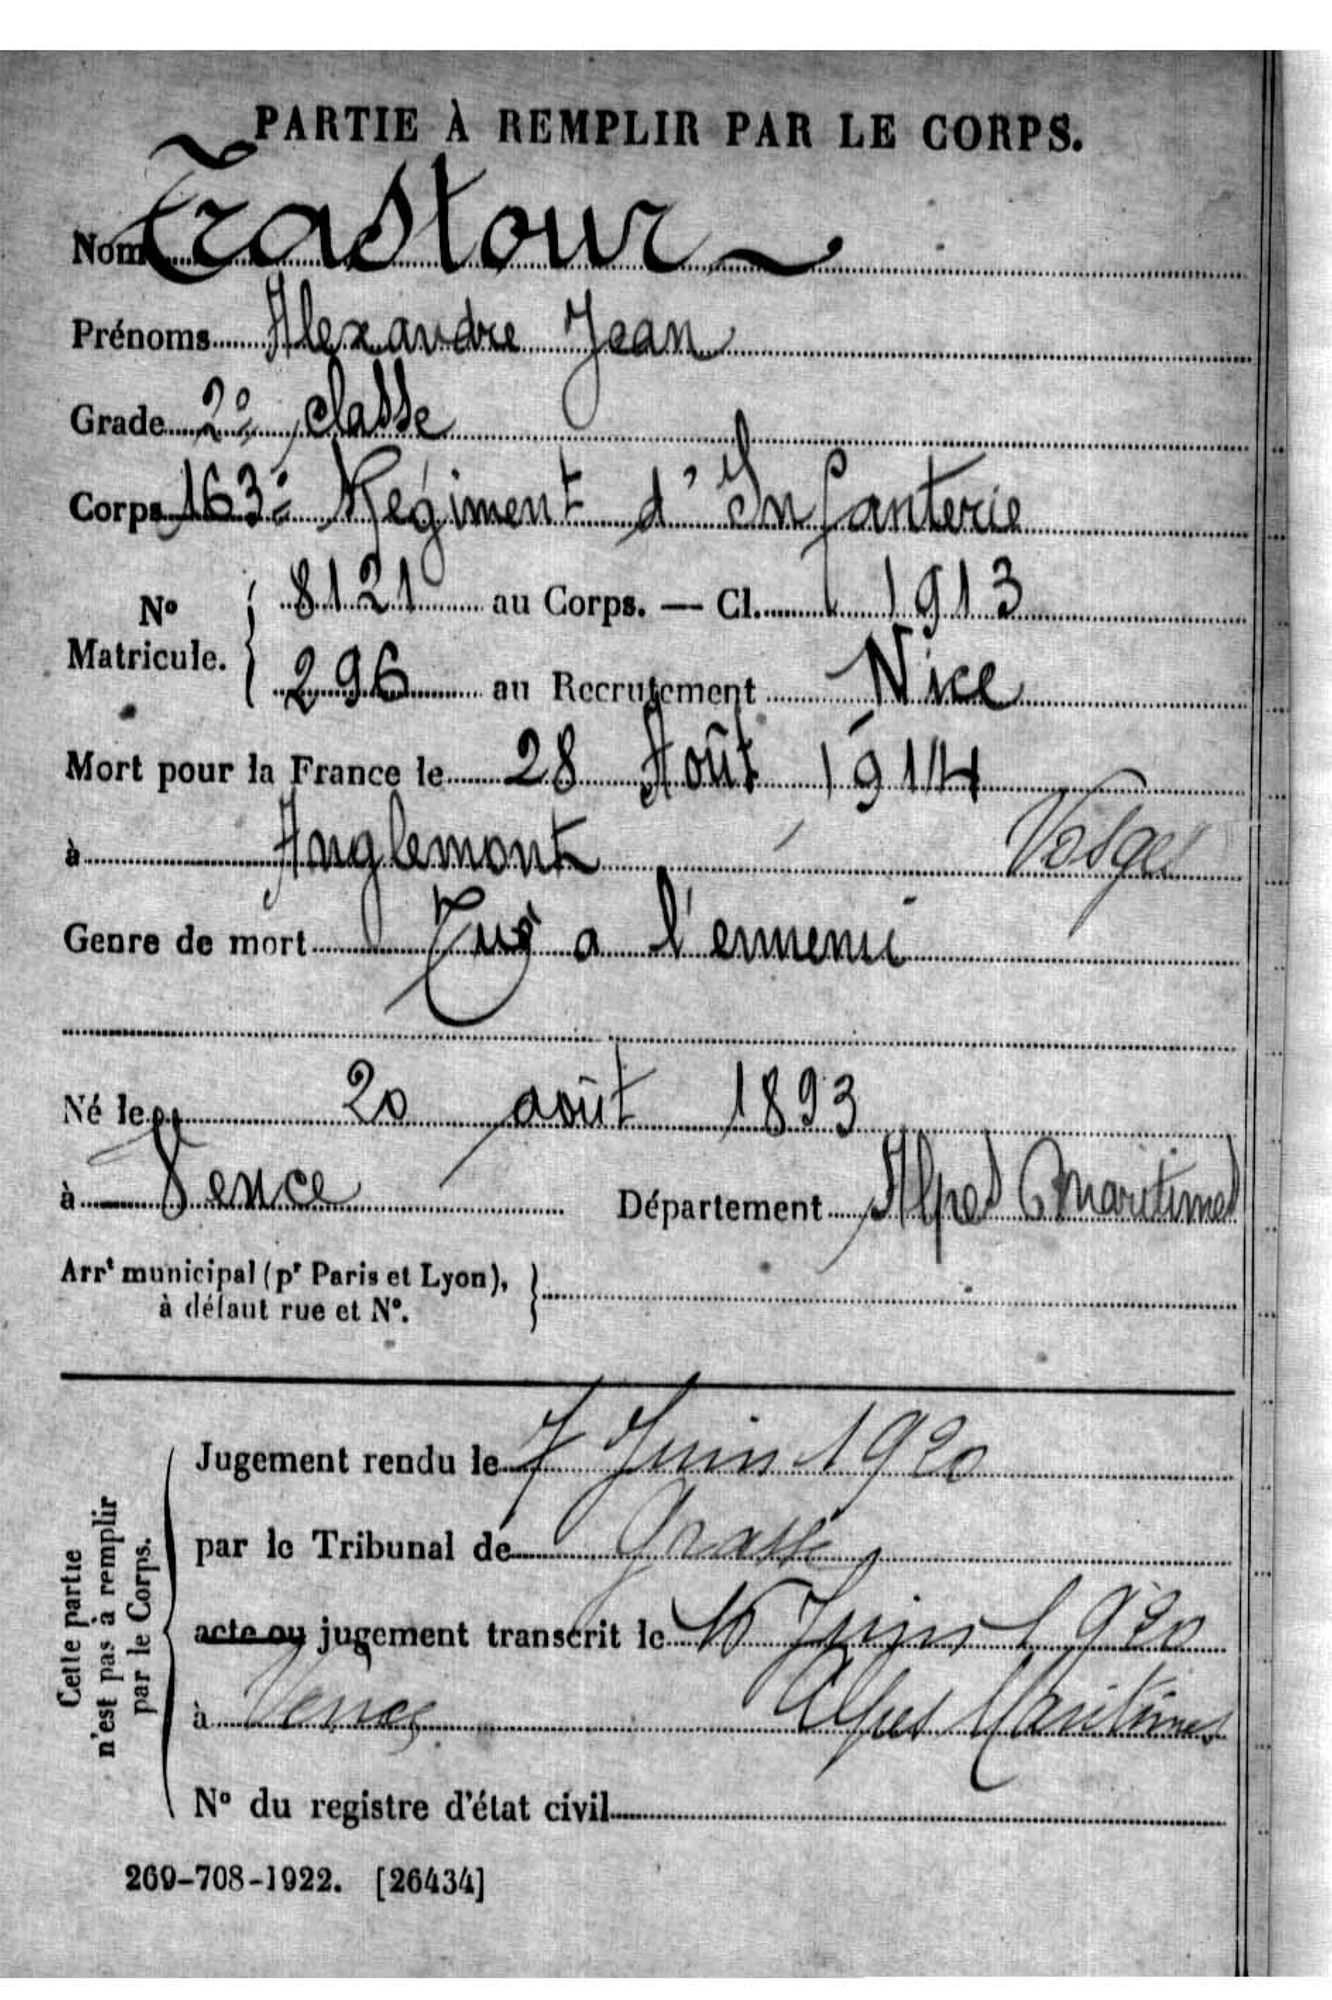 PARTIE À REMPLIR PAR LE CORPS.
Nom Trastour
Prénoms Alexandre Jean
Grade 2e classe
Corps 163e Régiment d'Infanterie
No Matricule. { 8121 au Corps. — Cl. 1913
296 au Recrutement Nice
Mort pour la France le 28 Août 1914
à Anglemont Vosges
Genre de mort Tué a l'ennemi
Né le 20 août 1893
à Vence Département Alpes Maritimes
Arrt municipal (pr Paris et Lyon), }
à défaut rue et No.
Cette partie n'est pas à remplir par le Corps.
Jugement rendu le 7 Juin 1920
par le Tribunal de Grasse
acte ou jugement transcrit le 16 Juin 1920
à Vence Alpes Maritimes
No du registre d'état civil
269-708-1922. [26434]